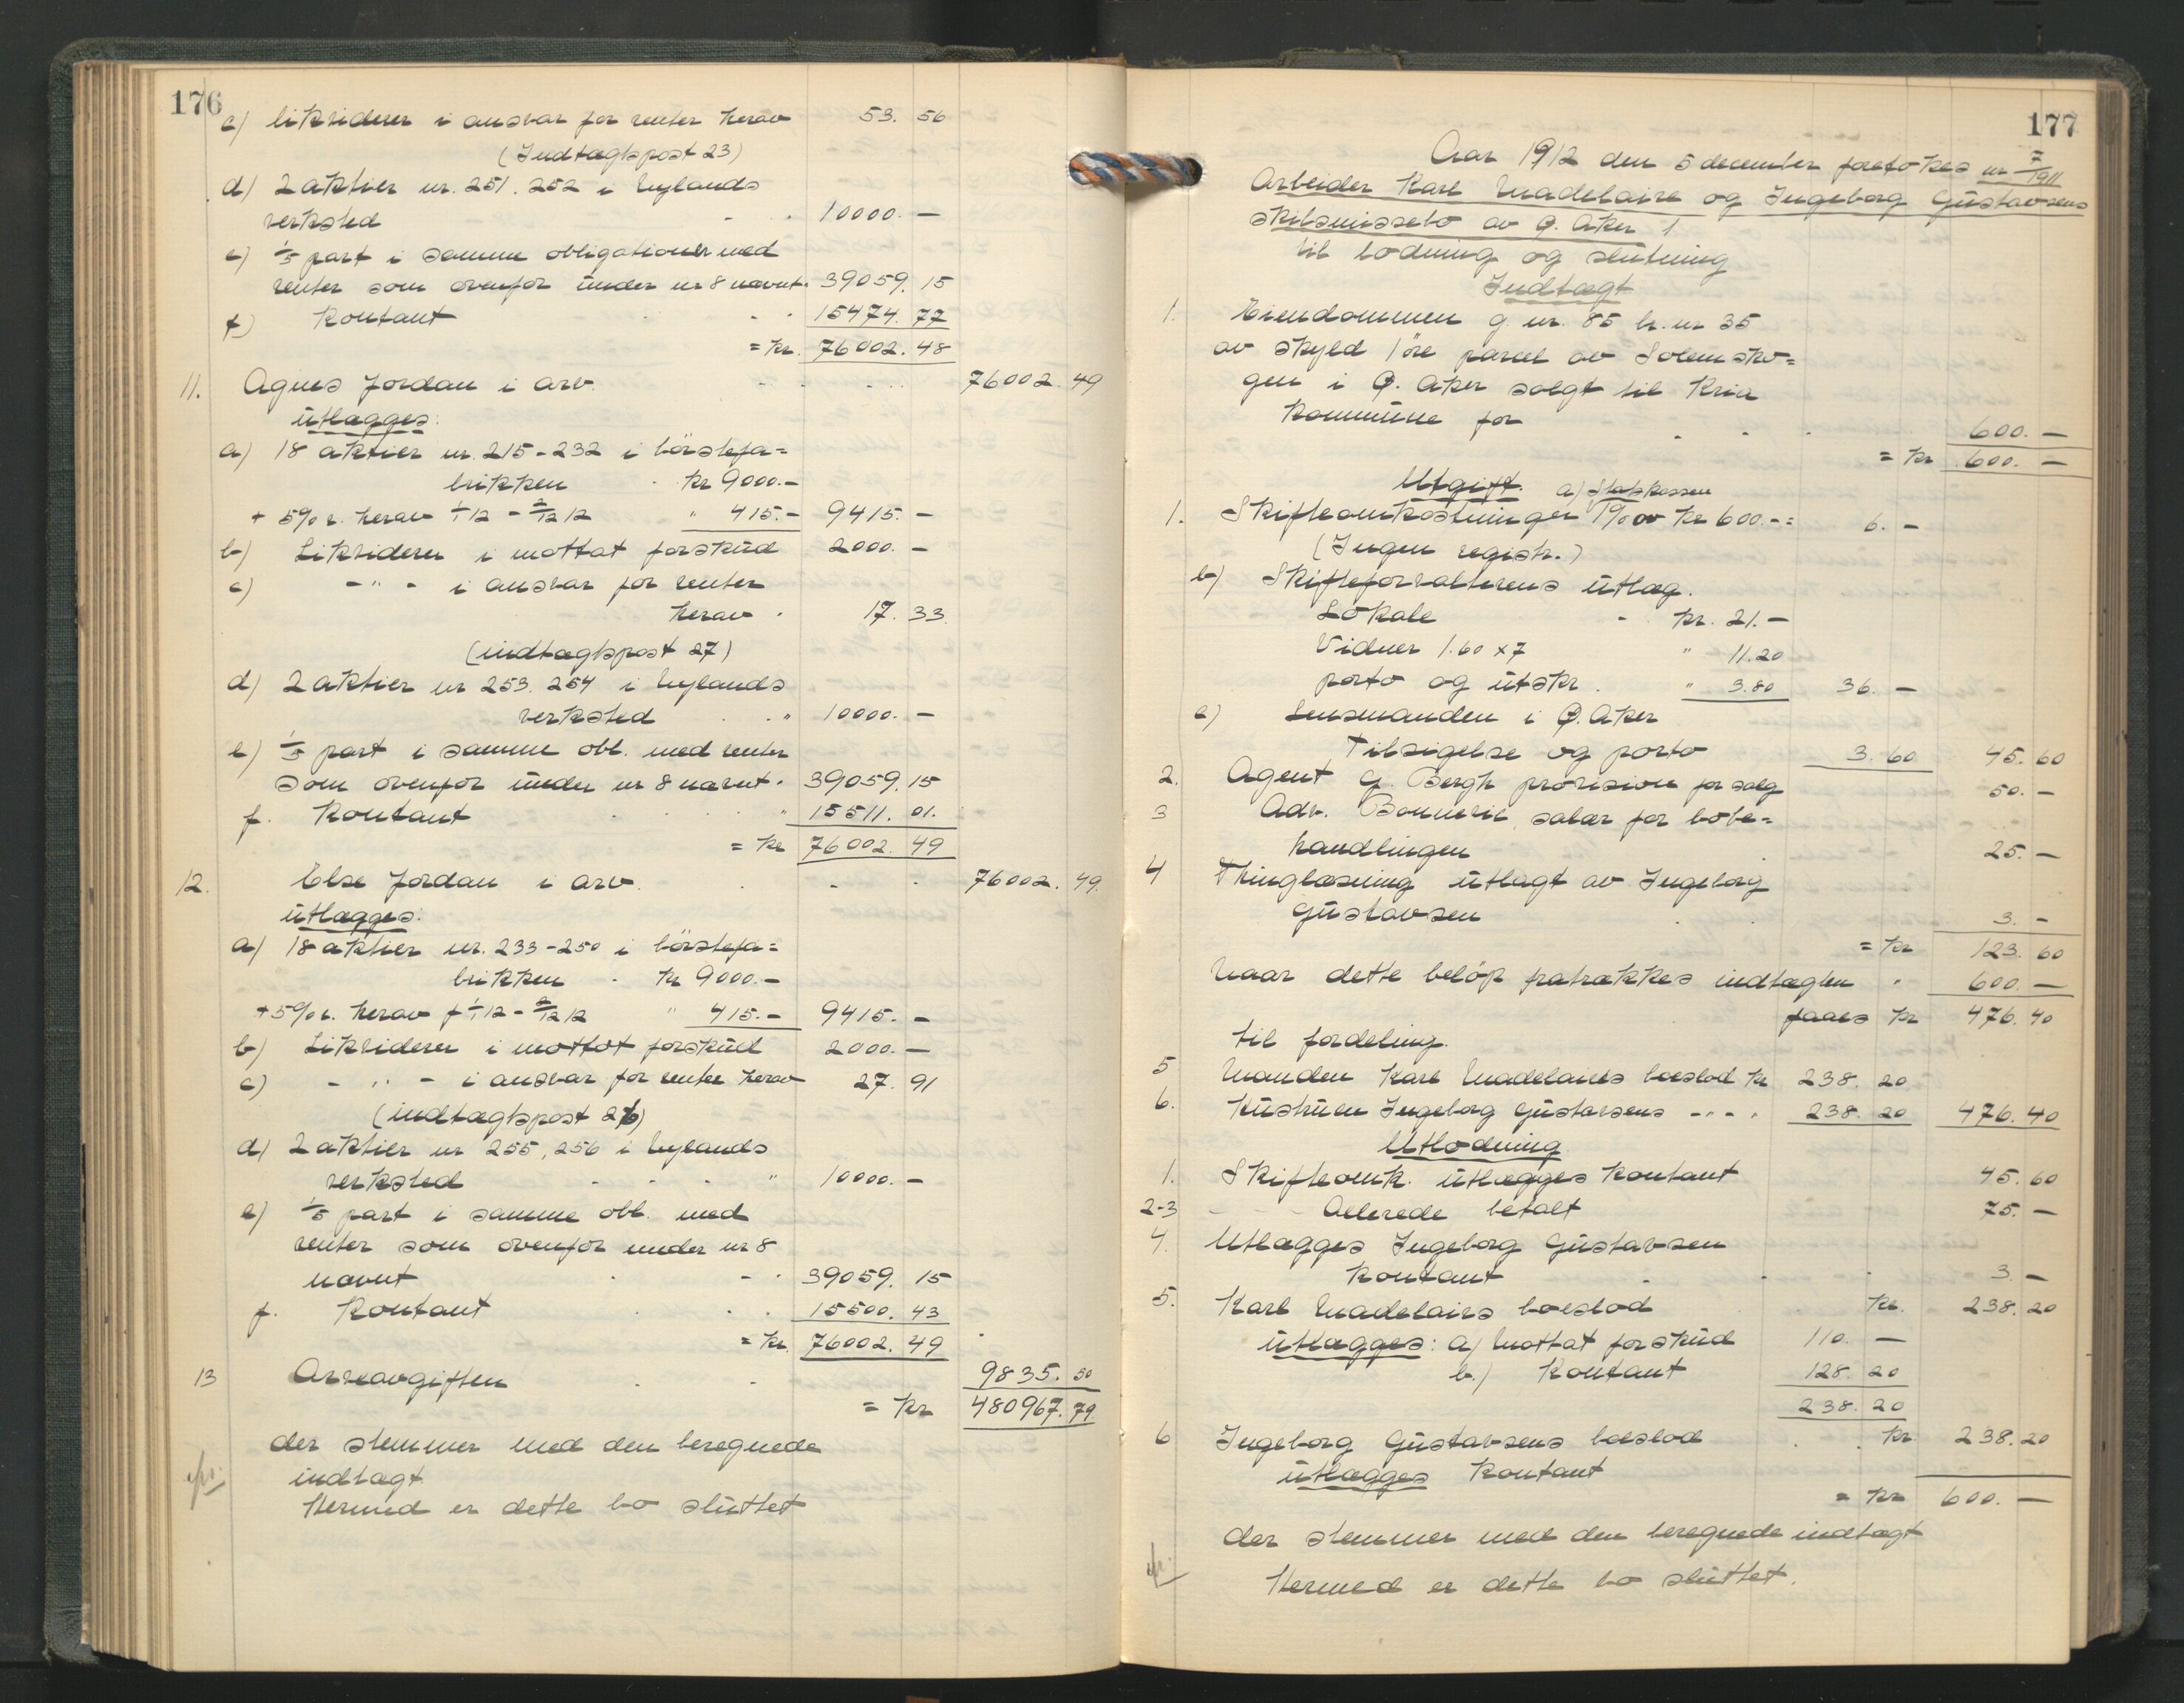 176
c) likviderer i ansvar for renter herav 53. 56
(Indtægtspost 23)
d) 2 aktier nr. 251. 252 i Nylands
verksted - . 10000. —
e) 1/5 part i samme obligationer med
renter som ovenfor under nr 8 nævnt. 39059. 15
f) Kontant . - . 15474. 77
= kr. 76002. 48
11. Agnes Jordan i arv. 76002. 49
utlægges:
a) 18 aktier nr. 215-232 i börstefa=
brikken . kr 9000.—
+ 5% r. herav 1/1 12 - 2/12 12 " 415.— 9415. —
b) Likviderer i mottat forskud 2000. —
c) -"- i ansvar for renter
herav . 17. 33.
(indtægtspost 27)
d) 2 aktier nr 253. 254 i Nylands
verksted . . " 10000. —
e) 1/5 part i samme obl. med renter
som ovenfor under nr 8 nævnt. 39059. 15
f. Kontant . . . " 15511. 01.
= kr 76002. 49
12. Else Jordan i arv. . - . 76002. 49.
utlægges:
a) 18 aktier nr. 233-250 i börstefa=
brikken . kr 9000.—
+ 5% r. herav f 1/1 12 - 2/12 12 " 415.— 9415. —
b) Likviderer i mottat forskud 2000. —
c) - " - i ansvar for renter herav 27. 91
(indtægtspost 26)
d) 2 aktier nr 255, 256 i Nylands
verksted - - - " 10000. —
e) 1/5 part i samme obl. med
renter som ovenfor under nr 8
nævnt . - . 39059. 15
f. Kontant . . . 15500. 43
= kr. 76002. 49
13 Arveavgiften . - 9835. 50
= kr 480967. 79
der stemmer med den beregnede
indtægt.
Hermed er dette bo sluttet
177
Aar 1912 den 5 december foretokes nr 7/1911
Arbeider Karl Madelaire og Ingeborg Gustavsens
skilsmissebo av Ø. Aker 1
til lodning og slutning
Indtægt
1. Eiendommen g. nr. 85 br. nr 35
av skyld 1 öre parcel av Solemsko=
gen i Ø. Aker solgt til Kria
kommune for . . . 600. —
= kr 600. —
Utgift. a) Statskassen
1. Skifteomkostninger 1% av kr 600.—= 6. —
(Ingen registr.)
b) Skifteforvalterens utlæg.
Lokale - kr. 21.—
Vidner 1.60 x 7 " 11.20
porto og utskr. " 3.80 36. —
c) Lensmanden i Ø. Aker
Tilsigelse og porto 3. 60 45. 60
2. Agent G. Bergh provision for salg 50. —
3 Adv. Bonnevie, salær for bobe=
handlingen . 25. —
4 Thinglæsning utlagt av Ingeborg
Gustavsen . . 3. —
= kr 123. 60
Naar dette belöp fratrækkes indtægten " 600. —
faaes kr 476. 40
til fordeling.
5 Manden Karl Madelaires boeslod kr 238. 20
6. Hustruen Ingeborg Gustavsens -"- " 238. 20 476. 40
Utlodning
1. Skifteomk. utlægges kontant 45. 60
2-3 - - - Allerede betalt 75. —
4. Utlægges Ingeborg Gustavsen
kontant . . . 3. —
5. Karl Madelaires boeslod kr. 238. 20
utlægges: a) Mottat forskud 110. —
b.) Kontant 128. 20
238. 20
6 Ingeborg Gustavsens boeslod . . kr 238. 20
utlægges kontant
= kr 600. —
der stemmer med den beregnede indtægt
Hermed er dette bo sluttet.